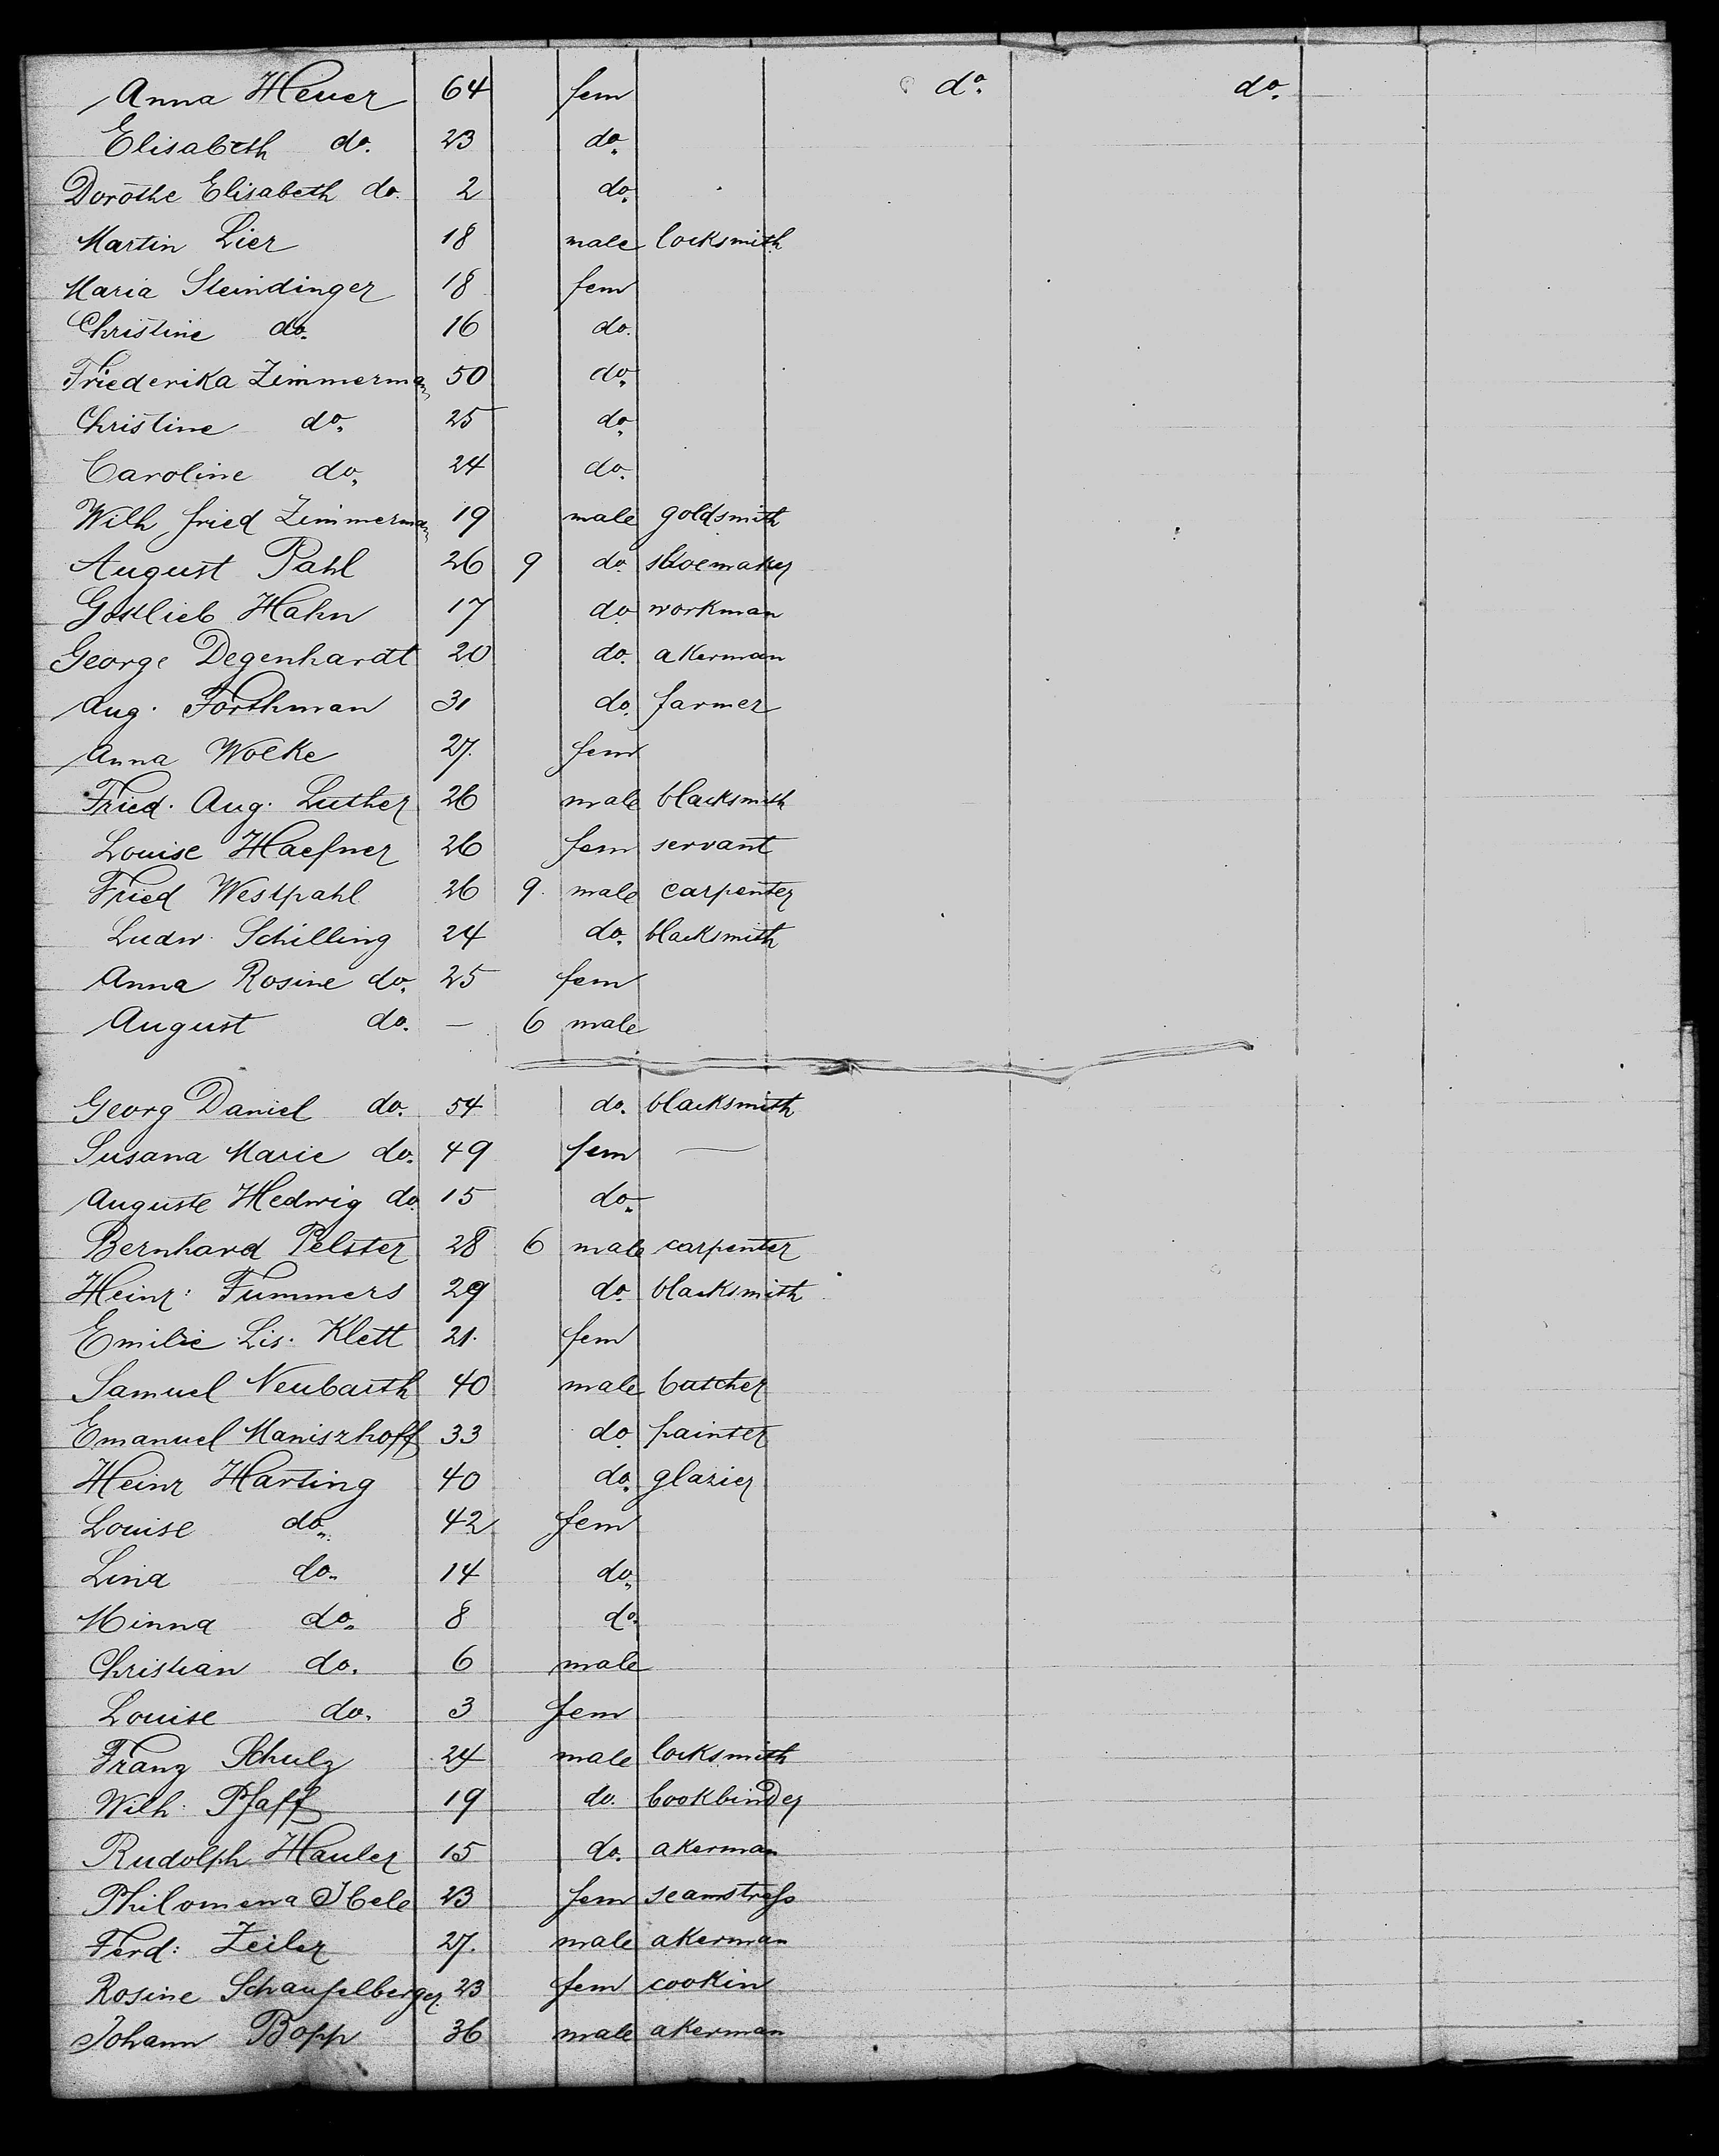 Anna Heuer 64 fem do. do.
Elisabeth do. 23 do.
Dorothe Elisabeth do. 2 do.
Martin Lier 18 male locksmith
Maria Steindinger 18 fem
Christine do. 16 do.
Friederika Zimmerman 50 do.
Christine do. 25 do.
Caroline do. 24 do.
Wilh fried Zimmerman 19 male goldsmith
August Pahl 26 9 do. shoemaker
Gottlieb Hahn 17 do workman
George Degenhardt 20 do. akerman
Aug. Forthman 31 do. farmer
Anna Woeke 27. fem
Fried. Aug. Luther 26 male blacksmith
Louise Haefner 26 fem servant
Fried Westpahl 26 9. male carpenter
Ludw. Schilling 24 do. blacksmith
Anna Rosine do. 25 fem
August do. — 6 male
Georg Daniel do. 54 do. blacksmith
Susana Marie do. 49 fem —
Auguste Hedwig do 15 do.
Bernhard Pelster 28 6 male carpenter
Heinr: Fummers 29 do. blacksmith
Emilie Lis. Klett 21. fem
Samuel Neubarth 40 male butcher
Emanuel Maniszhoff 33 do. painter
Heinr Harting 40 do. glazier
Louise do. 42 fem
Lina do. 14 do.
Minna do. 8 do.
Christian do. 6 male
Louise do. 3 fem
Franz Schulz 24 male locksmith
Wilh. Pfaff 19 do. bookbinder
Rudolph Hauler 15 do. akerman
Philomena Ibele 23 fem seamstress
Ferd: Zeiler 27. male akerman
Rosine Schaufelberger 23 fem cookin
Johann Bopp 36 male akerman